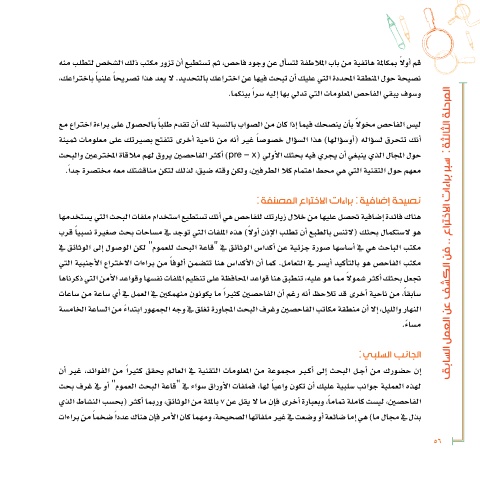 قم أولاً بمكالمة هاتفية من باب الملاطفة لتسأل عن وجود فاحص، ثم تستطيع أن تزور مكتب ذلك الشخص لتطلب منه
نصيحة حول المنطقة المحددة التي عليك أن تبحث فيها عن اختراعك بالتحديد. لا يعد هذا تصريحاً علنياً باختراعك،
وسوف يبقي الفاحص المعلومات التي تدلي بها إليه سراً بينكما.
ليس الفاحص مخولاً بأن ينصحك فيما إذا كان من الصواب بالنسبة لك أن تقدم طلباً بالحصول على براءة اختراع مع
أنك تتحرق لسؤاله (أوسؤالها) هذا السؤال خصوصاً غير أنه من ناحية أخرى تنتفع بصيرتك على معلومات ثمينة
حول المجال الذي ينبغي أن يجري فيه بحثك الأولي (pre – x) أكثر الفاحصين يروق لهم ملاقاة المخترعين والبحث
معهم حول التقنية التي هي محط اهتمام كلا الطرفين، ولكن وقته ضيق، لذلك لتكن مناقشتك معه مختصرة جداً.
نصيحة إضافية : براءات الاختراع المصنفة :
هناك فائدة إضافية تحصل عليها من خلال زيارتك للفاحص هي أنك تستطيع استخدام ملفات البحث التي يستخدمها
هو لاستكمال بحثك (لاتنس بالطبع أن تطلب الإذن أولاً) هذه الملفات التي توجد في مساحات بحث صغيرة نسبياً قرب
مكتب الباحث هي في أساسها صورة جزئية عن أكداس الوثائق في "قاعة البحث للعموم" لكن الوصول إلى الوثائق في
مكتب الفاحص هو بالتأكيد أيسر في التعامل. كما أن الأكداس هنا تتضمن ألوفاً من براءات الاختراع الأجنبية التي
تجعل بحثك أكثر شمولا مما هو عليه، تنطبق هنا قواعد المحافظة على تنظيم الملفات نفسها وقواعد الأمن التي ذكرناها
سابقاً، من ناحية أخرى قد تلاحظ أنه رغم أن الفاحصين كثيراً ما يكونون منهمكين في العمل في أي ساعة من ساعات
النهار والليل، إلا أن منطقة مكاتب الفاحصين وغرف البحث المجاورة تغلق في وجه الجمهور ابتداءً من الساعة الخامسة
مساءً.
الجانب السلبي :
إن حضورك من أجل البحث إلى أكبر مجموعة من المعلومات التقنية في العالم يحقق كثيراً من الفوائد، غير أن
لهذه العملية جوانب سلبية عليك أن تكون واعياً لها، فملفات الأوراق سواء في "قاعة البحث العموم" أو في غرف بحث
الفاحصين، ليست كاملة تماماً، وبعبارة أخرى فإن ما لا يقل عن ٧ بالمئة من الوثائق، وربما أكثر (بحسب النشاط الذي
بذل في مجال ما) هي إما ضائعة أو وضعت في غير ملفاتها الصحيحة، ومهما كان الأمر فإن هناك عدداً ضخماً من براءات
المرحلة الثالثة : سبر براءات الاختراع .. فن الكشف عن العمل السابق
٥٦